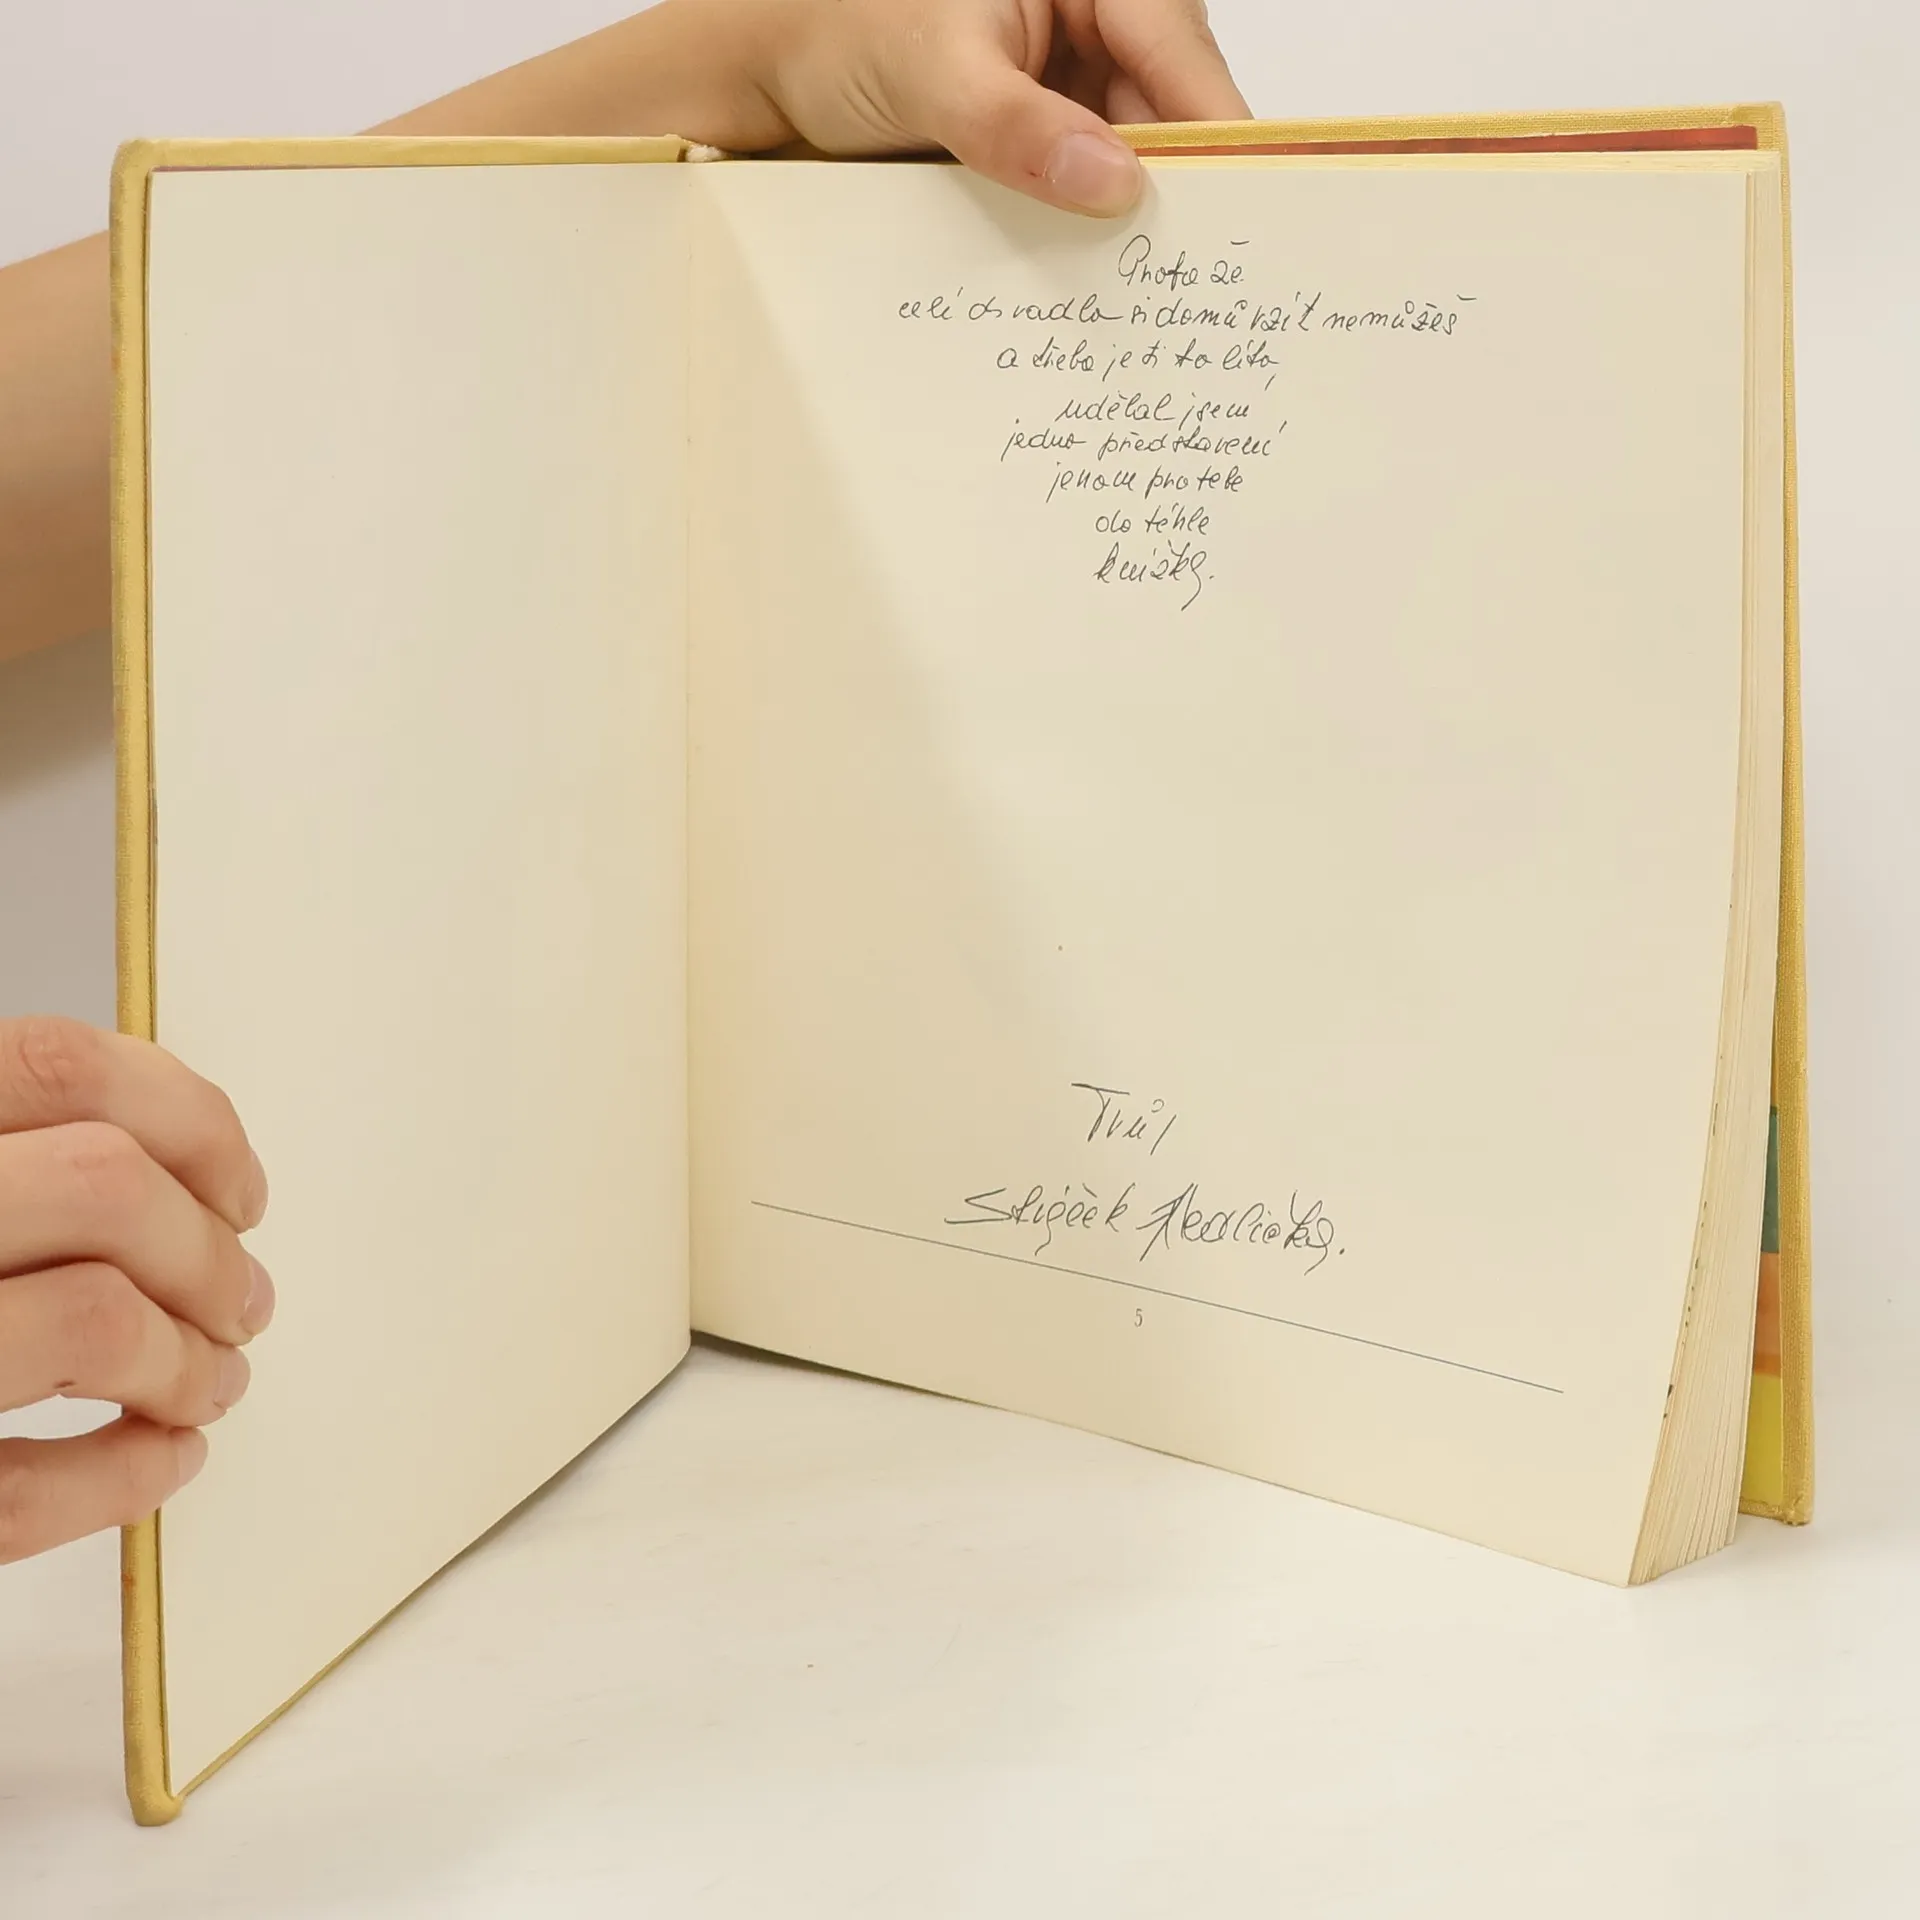 Protože
celé divadlo si domů vzít nemůžeš
a třeba je ti to líto,
udělal jsem
jedno představení
jenom pro tebe
do téhle
knížky.
Tvůj
Strýček Jedlička.
5